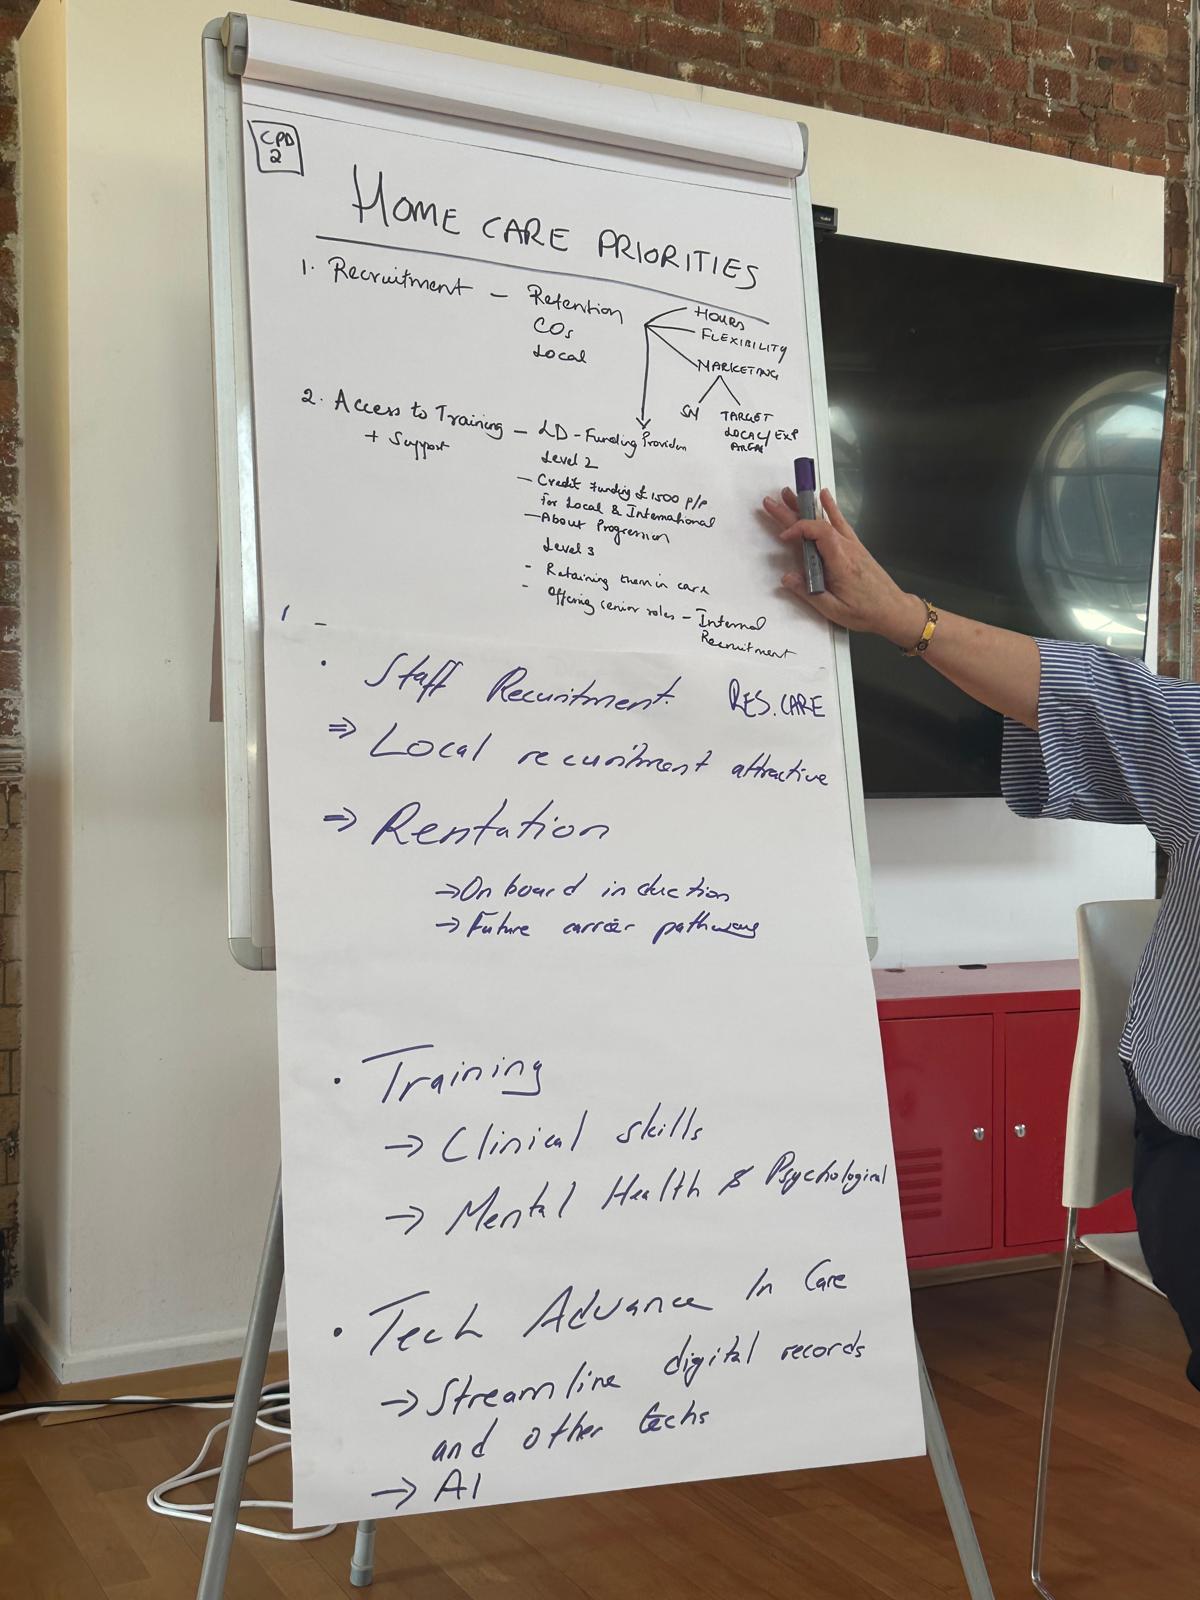 CPD
2
HOME CARE PRIORITIES
1. Recruitment - Retention
COs
Local
HOURS
FLEXIBILITY
MARKETING
SM
TARGET
LOCAL/EXP
AREAS
2. Access to Training
+ Support
- LD - Funding Provision
Level 2
- Credit Funding £1500 p/p
For Local & International
- About Progression
Level 3
- Retaining them in care
- Offering senior roles - Internal
Recruitment
• Staff Recruitment. RES. CARE
⇒ Local recruitment attractive
⇒ Rentation
→ On board induction
→ Future carrier pathways
• Training
→ Clinical skills
→ Mental Health & Psychological
• Tech Advance In Care
→ Streamline digital records
and other techs
→ AI